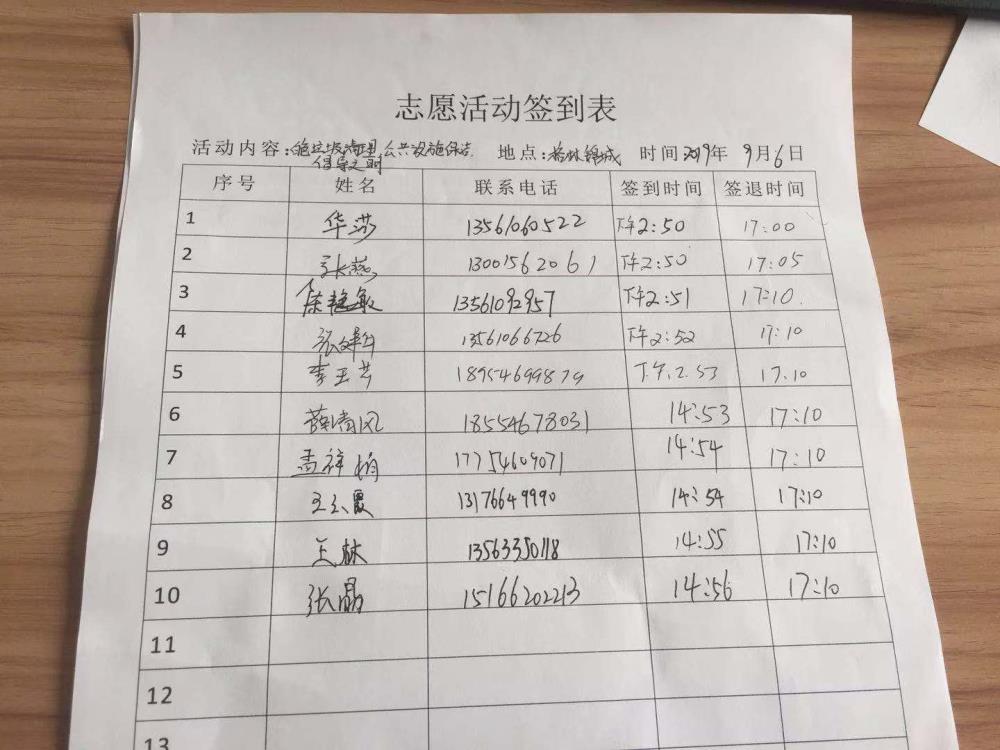 志愿活动签到表
活动内容: 垃圾清理 公共设施保洁 地点: 格林锦城 时间 2019年 9月6日
倡导文明
序号 姓名 联系电话 签到时间 签退时间
1 华莎 13561060522 下午2:50 17:00
2 张燕 13001562061 下午2:50 17:05
3 陈艳敏 13561092957 下午2:51 17:10.
4 13561066726 下午2:52 17:10
5 李玉芳 18954699879 下午.2.53 17.10
6 薛清风 18554678031 14:53 17:10
7 孟祥娟 17754609071 14:54 17:10
8 13176649990 14:54 17:10
9 王林 13563350118 14:55 17:10
10 张晶 15166202213 14:56 17:10
11
12
13